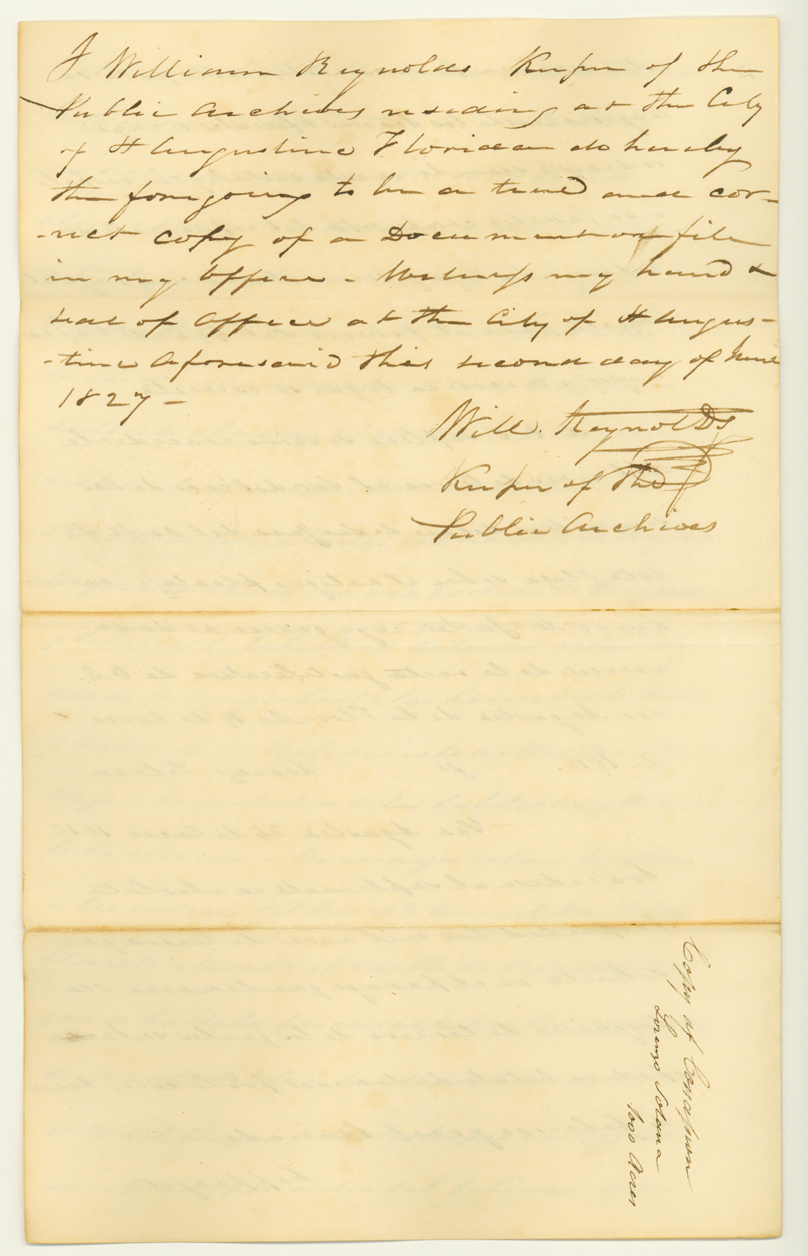 I William Reynolds Keeper of the
Public Archives residing at the City
of St Augustine Florida do hereby
the foregoing to be a true and cor-
-rect copy of a Document on file
in my Office - Witness my hand &
seal of Office at the City of St Augus-
-tine Aforesaid this second day of June
1827 -
Will. Reynolds
Keeper of the
Public Archives
Copy of Concession
Lorenzo Solana
1000 Acres